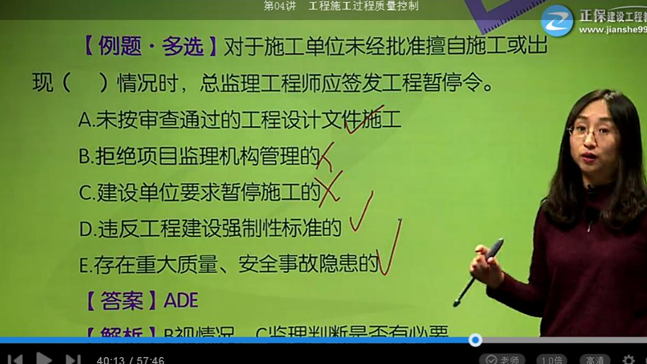 第04讲 工程施工过程质量控制
正保建设工程教
www.jianshe99
【例题·多选】对于施工单位未经批准擅自施工或出
现（ ）情况时，总监理工程师应签发工程暂停令。
A.未按审查通过的工程设计文件施工
B.拒绝项目监理机构管理的
C.建设单位要求暂停施工的
D.违反工程建设强制性标准的
E.存在重大质量、安全事故隐患的
【答案】ADE
【解析】B视情况，C监理判断是否有必要
40:13 / 57:46
老师
1.0倍
高清